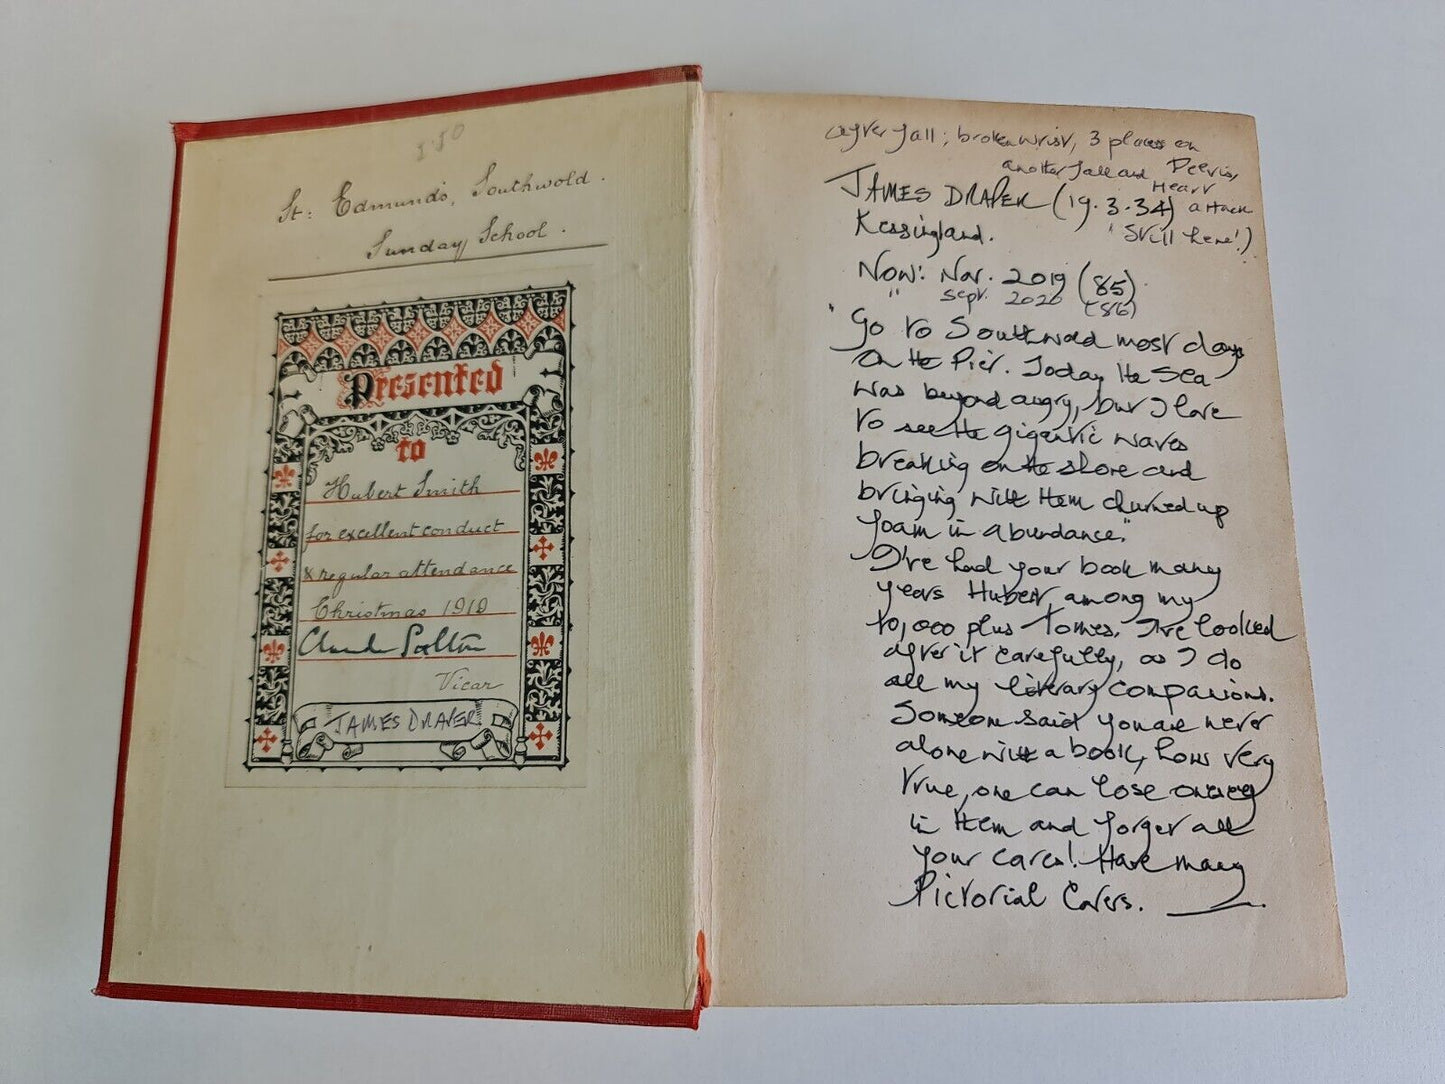 3'50
St: Edmund's, Southwold.
Sunday School.
Presented
to
Hubert Smith
for excellent conduct
& regular attendance
Christmas 1919
Vicar
JAMES DRAPER
after fall; broken wrist, 3 places on
another fall and Pelvis,
Heart
JAMES DRAPER (19.3.34) attack
Kessingland. "Still here!)
Now: Nov. 2019 (85)
" Sept. 2020 (86)
"Go to Southwold most days
on the Pier. Today the sea
was beyond angry, but I love
to see the gigantic waves
breaking on the shore and
bringing with them churned up
foam in abundance."
I've had your book many
years Hubert among my
10,000 plus Tomes. I've looked
after it carefully, as I do
all my literary companions.
Someone said you are never
alone with a book, how very
true, one can lose oneself
in them and forget all
your cares! Have many
Pictorial Covers.